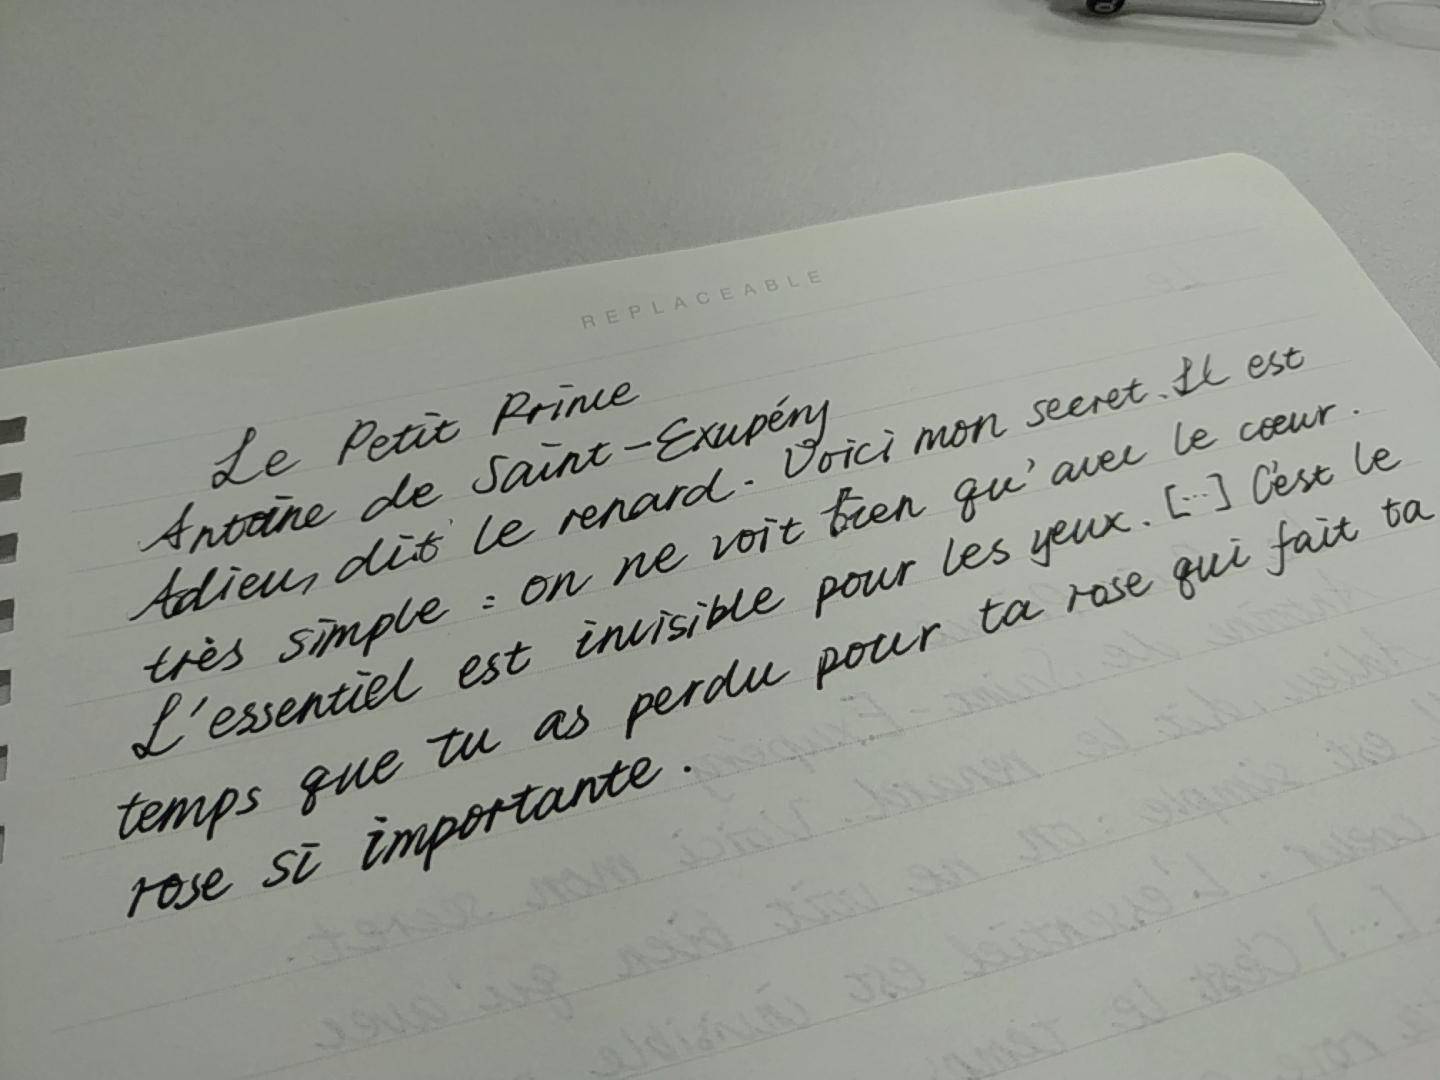 REPLACEABLE
Le Petit Prince
Antoine de Saint-Exupéry
Adieu, dit le renard. Voici mon secret. Il est
très simple : on ne voit bien qu'avec le cœur.
L'essentiel est invisible pour les yeux. [...] C'est le
temps que tu as perdu pour ta rose qui fait ta
rose si importante.